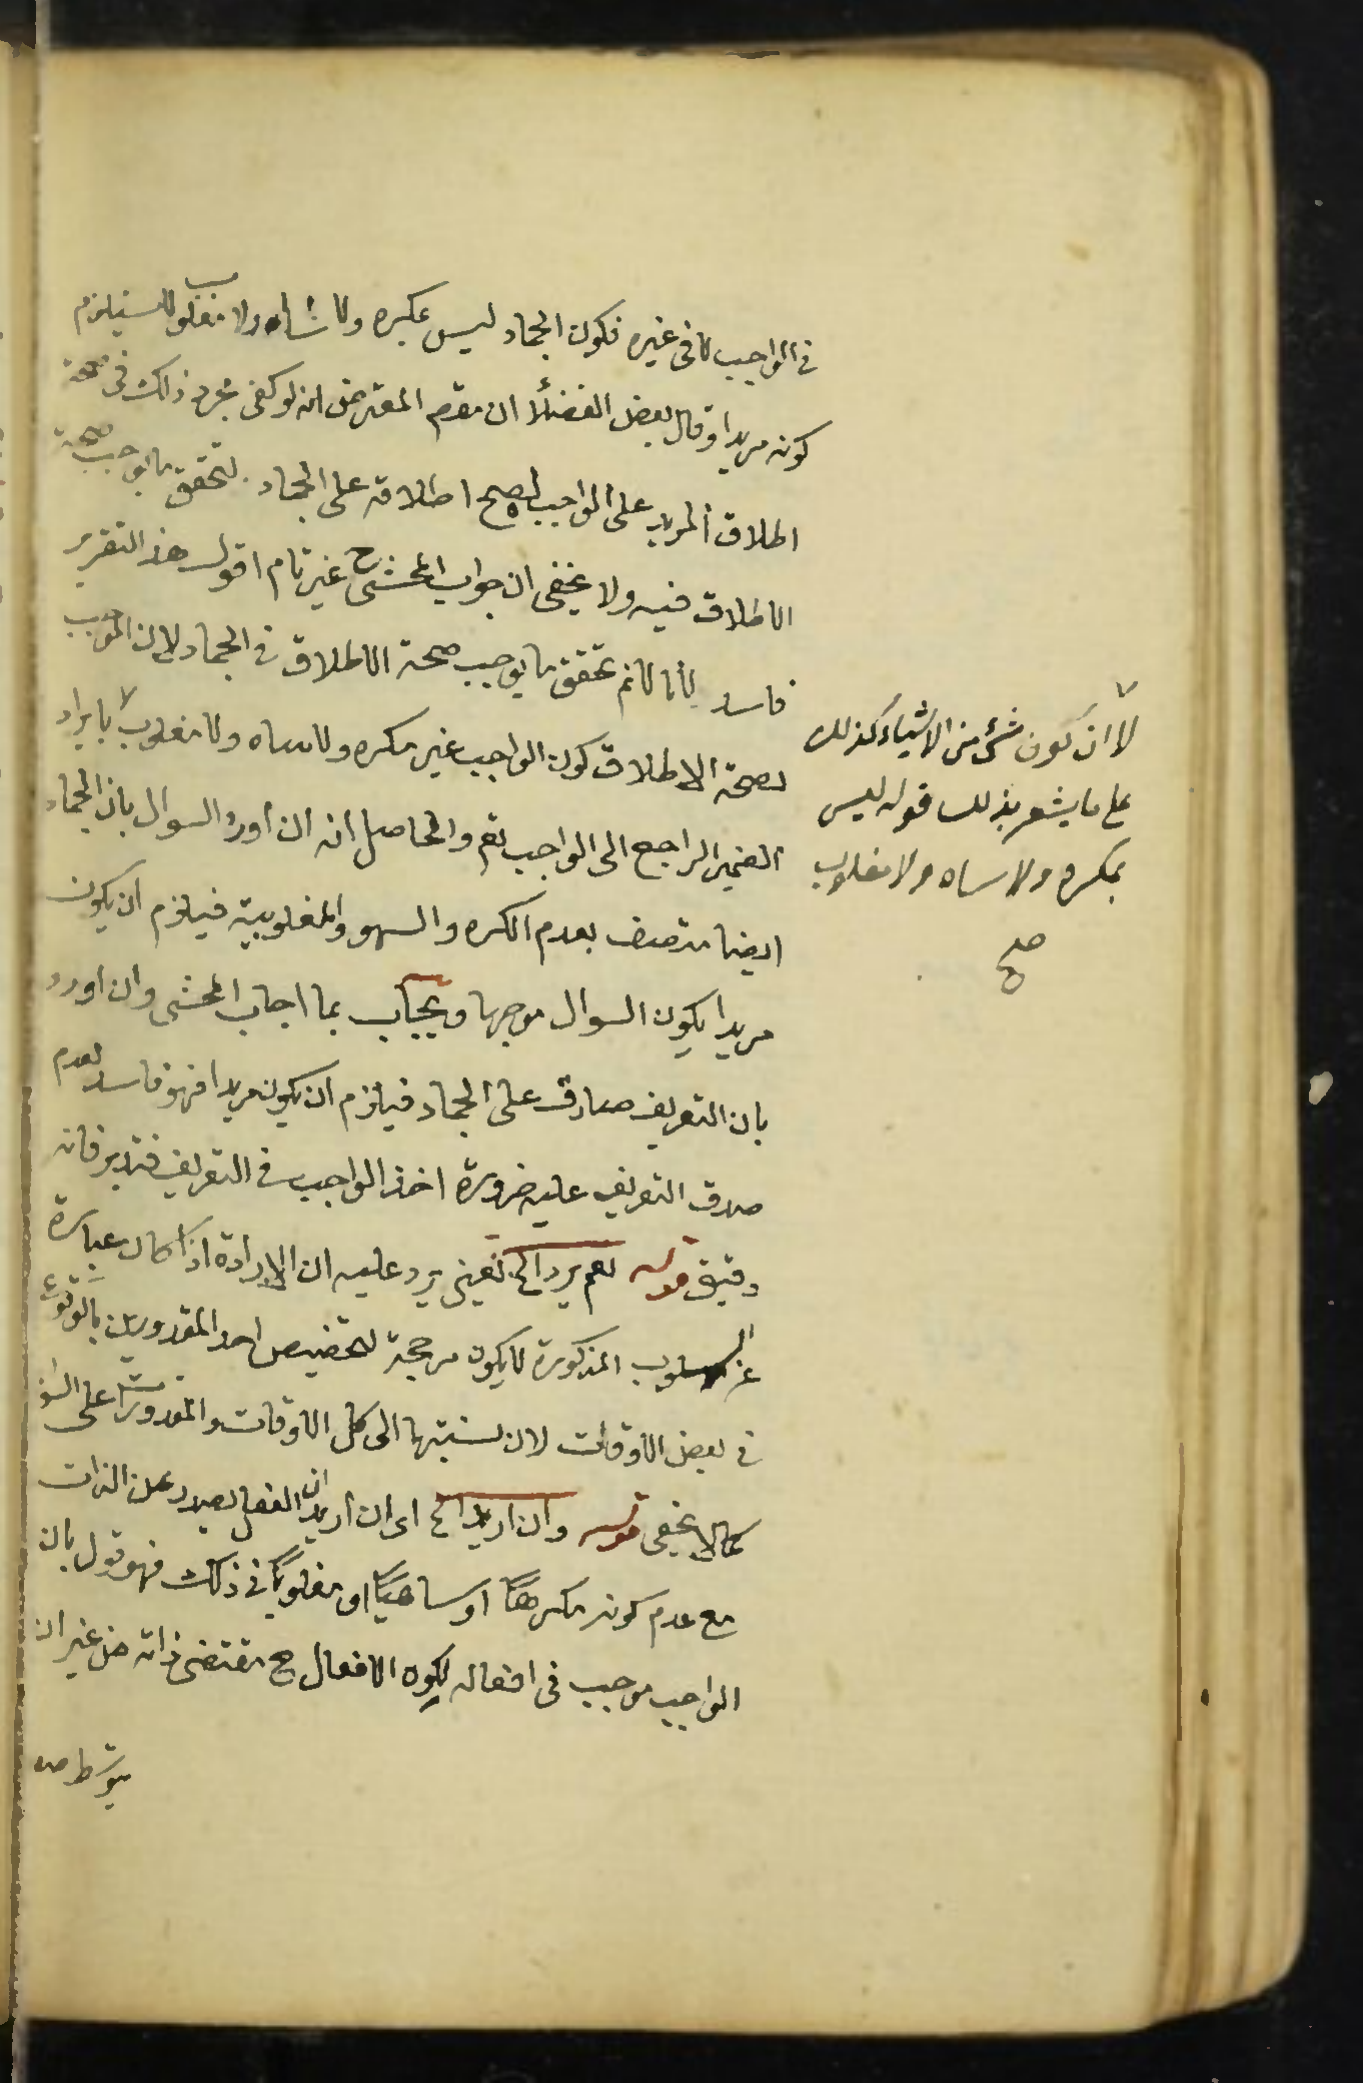 في الواجب لا في غيره فكون الجماد ليس بمكره ولا ساه ولا مغلوب لا يستلزم
كونه مريدا وقال بعض الفضلأ ان مقصود المعترض انه لو كفى مجرد ذلك في صحة
اطلاق المريد على الواجب لصح اطلاقه على الجماد لتحقق ما يوجب صحة
الاطلاق فيه ولا يخفى ان جواب المحشى ح غير تام اقول هذا التقرير
فاسد لأنا لا نم تحقق ما يوجب صحة الاطلاق في الجماد لان الموجب
لصحة الاطلاق كون الواجب غير مكره ولا ساه ولا مغلوب بايراد
الضمير الراجع الى الواجب تع والحاصل انه ان اورد السوال بان الجماد
ايضا متصف بعدم الكره والسهو والمغلوبية فيلزم ان يكون
مريدا يكون السوال موجها ويجاب بما اجاب المحشى وان اورد
بان التعريف صادق على الجماد فيلزم ان يكون مريدا فهو فاسد لعدم
صدق التعريف عليه ضرورة اخذ الواجب في التعريف فتدبر فانه
دقيق قوله نعم يرد الخ يعني يرد عليه ان الارادة اذا كان عبارة
عن السلوب المذكورة لا يكون مرجحة لتخصيص احد المقدورين بالوقوع
في بعض الاوقات لان نسبتها الى كل الاوقات والمقدورين على السوا
كما لا يخفى قوله وان اريد الخ اى ان اريد ان الفعل يصدر عن الذات
مع عدم كونه مكرها او ساهيا او مغلوبا في ذلك فهو قول بان
الواجب موجب في افعاله لكون الافعال ح مقتضى ذاته من غير ان
يتوسط
لا ان كون شئ من الاشياء كذلك
على ما يشعر بذلك قوله ليس
بمكره ولا ساه ولا مغلوب
صح